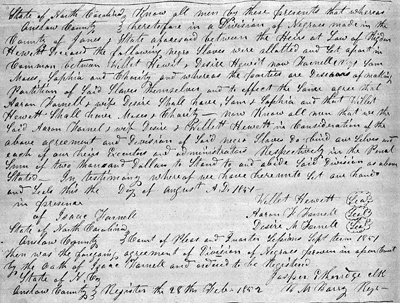 State of North Carolina } Know all men by these presents that whereas
Onslow County } heretofore in a Division of Negroes made in the
County & State aforesaid between the Heirs at Law of
Hewett Decsd the following negro Slaves were allotted and Set apart in
Common between Hillet Hewett & Desire Hewit now Farnell viz Sam
Moses, Sophia and Charity and whereas the parties are Desirous of making
Partition of Said Slaves Themselves and to effect the Same agree that
Aaron Farnell & wife Desire Shall have, Sam & Sophia and that Hillet
Hewett Shall have Moses & Charity — now Know all men that we the
Said Aaron Farnell & wife Desire & Hillett Hewett in Consideration of the
above agreement and Division of Said negro Slaves do bind our Selves and
each of our heirs Executors and administrators Respectively in the Penal
Sum of two thousand Dollars to Stand to and abide Said Division as above
Stated — In testimony whereof we have hereunto Set our hands
and Seals this the Day of August A.D. 1851
in presence Hillet Hewett (Seal)
of Isaac Farnell Aaron Farnell (Seal)
State of North Carolina Desire M Farnell (Seal)
Onslow County } Court of Pleas and Quarter Sessions Sept Term 1851
Then was the foregoing agreement of Division of Negroes proven in open court
by the Oath of Isaac Farnell and ordered to be Registered
State of N. C. Jasper Etheridge clk
Onslow County } Register the 28th Feb. 1852 Regr